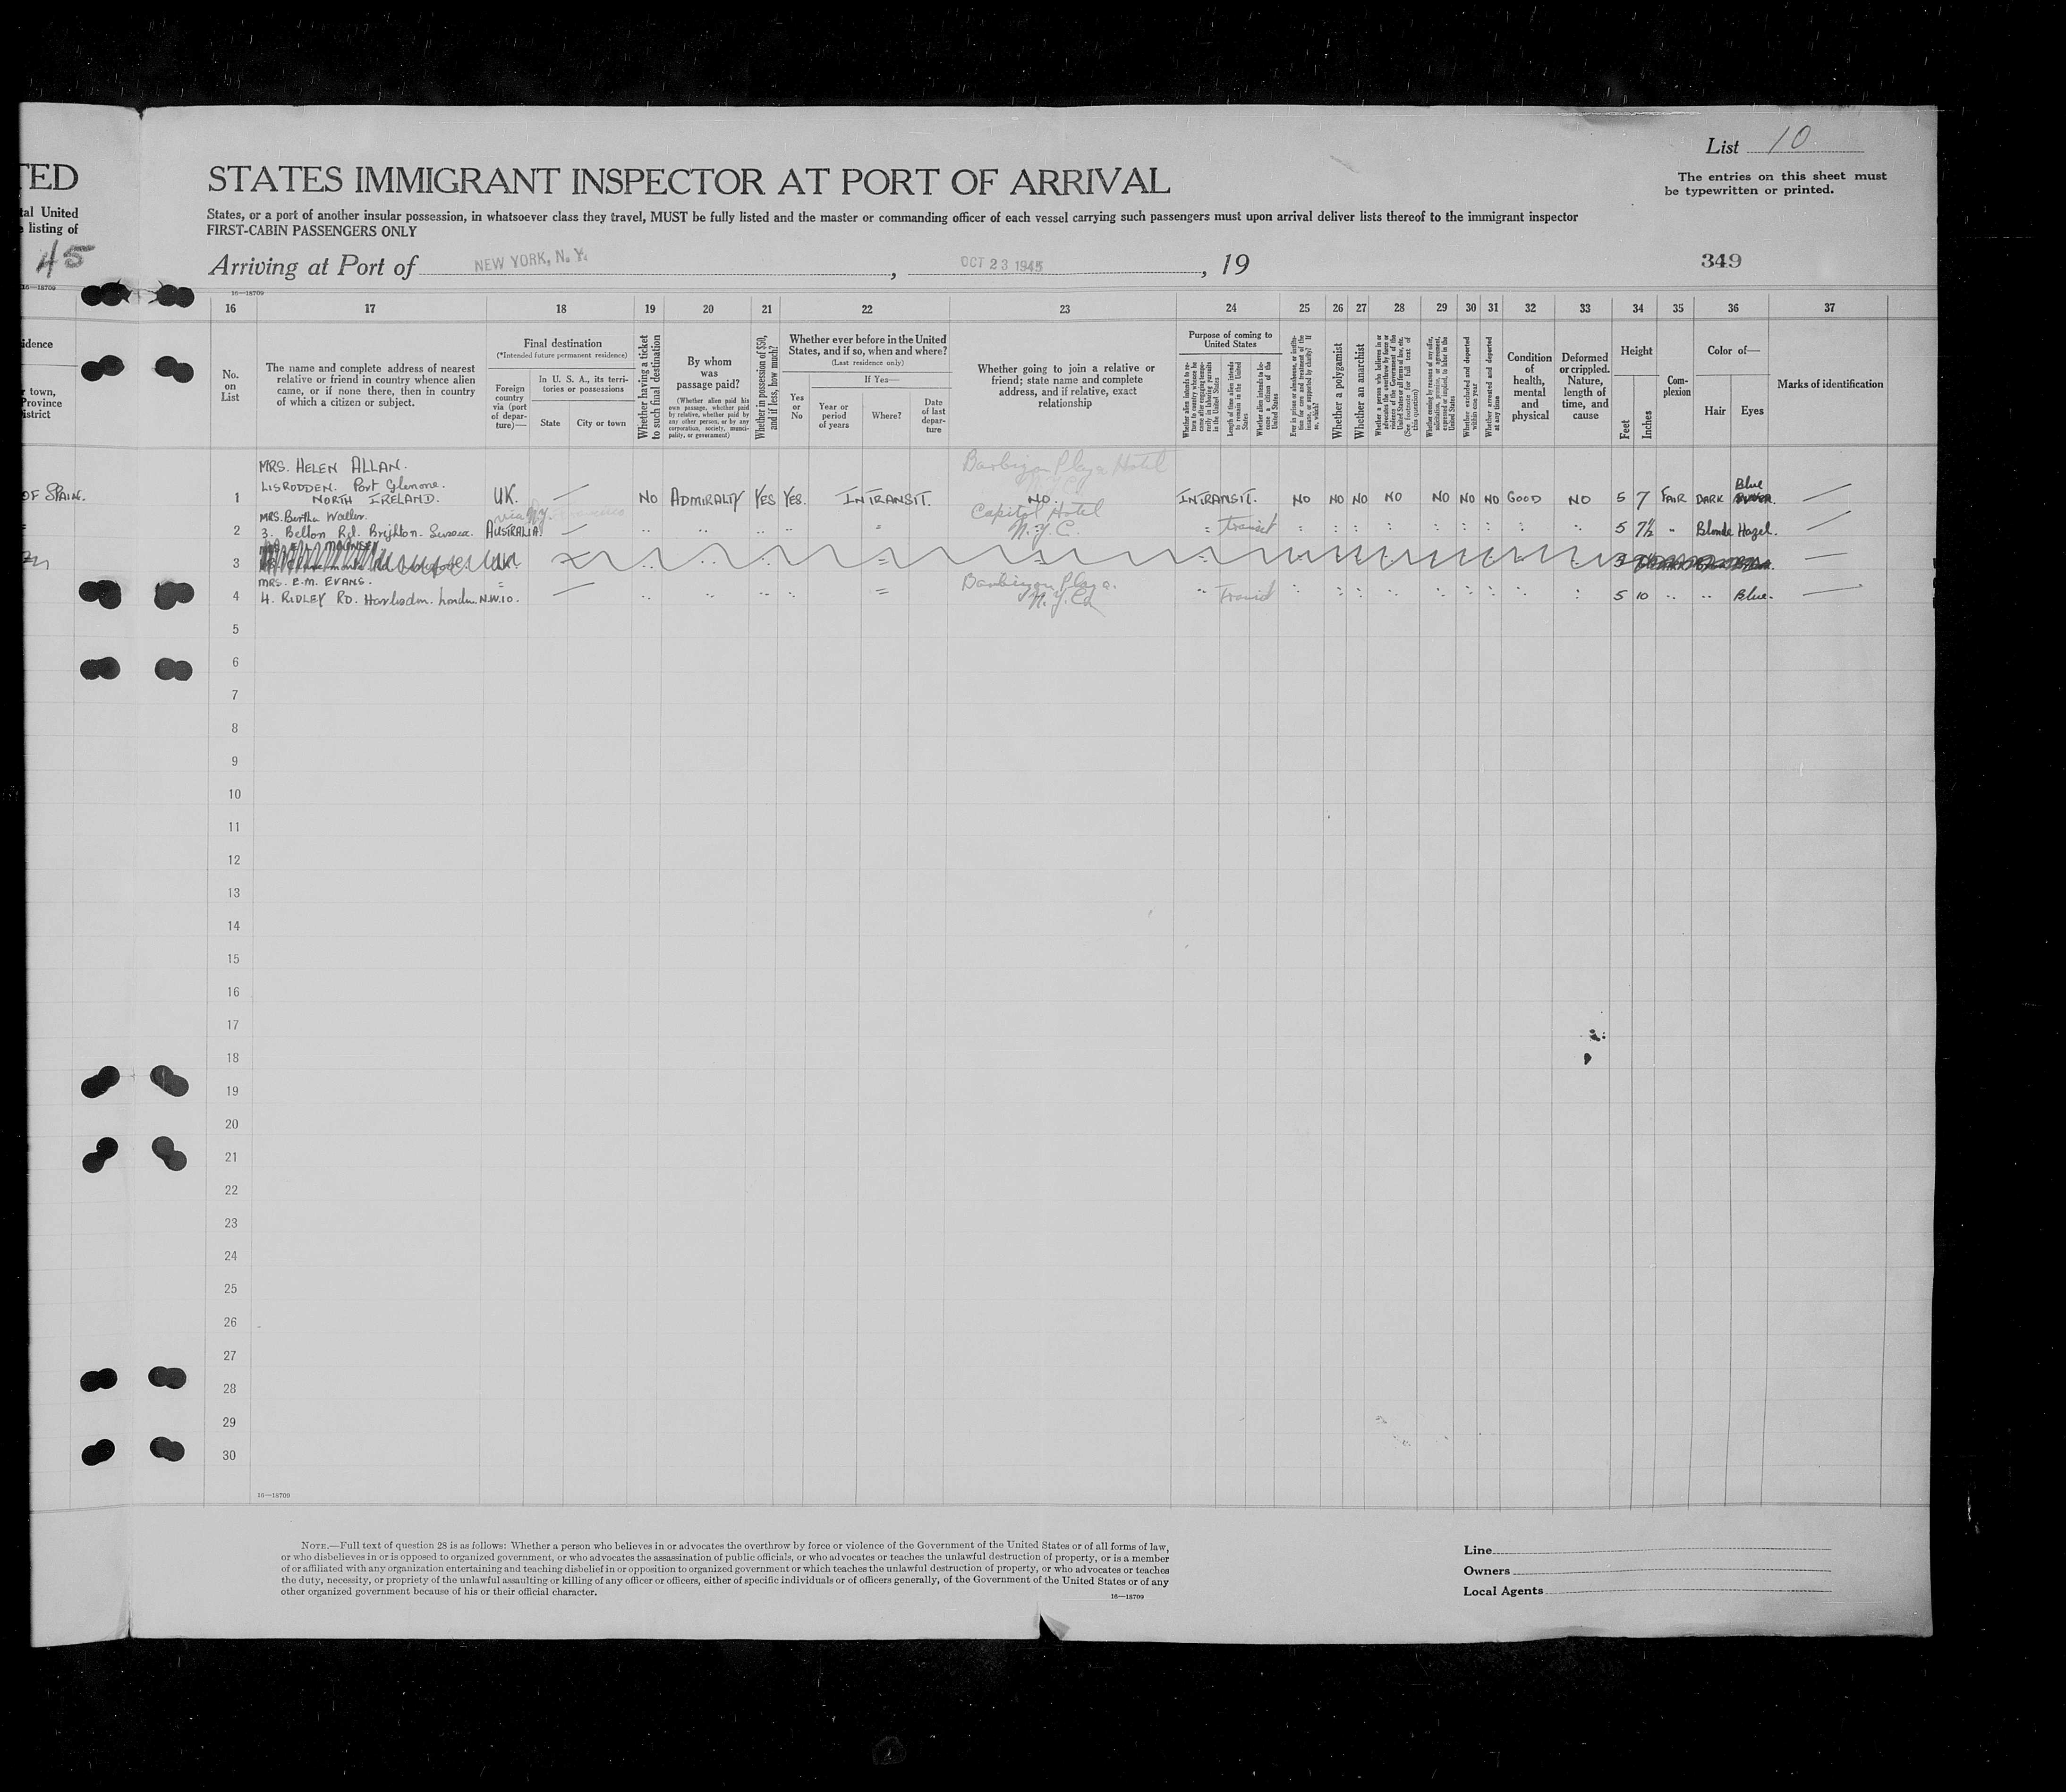 List 10
The entries on this sheet must
be typewritten or printed.
TED
STATES IMMIGRANT INSPECTOR AT PORT OF ARRIVAL
tal United
listing of
States, or a port of another insular possession, in whatsoever class they travel, MUST be fully listed and the master or commanding officer of each vessel carrying such passengers must upon arrival deliver lists thereof to the immigrant inspector
FIRST-CABIN PASSENGERS ONLY
45
Arriving at Port of NEW YORK, N. Y. , OCT 23 1945 , 19
349
16—18709
16—18709
16 17 18 19 20 21 22 23 24 25 26 27 28 29 30 31 32 33 34 35 36 37
idence
r town,
Province
istrict
No.
on
List
The name and complete address of nearest
relative or friend in country whence alien
came, or if none there, then in country
of which a citizen or subject.
Final destination
(*Intended future permanent residence)
Foreign
country
via (port
of depar-
ture)—
In U. S. A., its terri-
tories or possessions
State
City or town
Whether having a ticket
to such final destination
By whom
was
passage paid?
(Whether alien paid his
own passage, whether paid
by relative, whether paid by
any other person, or by any
corporation, society, munici-
pality, or government)
Whether in possession of $50,
and if less, how much?
Whether ever before in the United
States, and if so, when and where?
(Last residence only)
Yes
or
No
If Yes—
Year or
period
of years
Where?
Date
of last
depar-
ture
Whether going to join a relative or
friend; state name and complete
address, and if relative, exact
relationship
Purpose of coming to
United States
Length of time alien intends
to remain in the United
States
Whether alien intends to be-
come a citizen of the
United States
Whether a polygamist
Whether an anarchist
Whether excluded and deported
within one year
Whether arrested and deported
at any time
Condition
of
health,
mental
and
physical
Deformed
or crippled.
Nature,
length of
time, and
cause
Height
Feet
Inches
Com-
plexion
Color of—
Hair
Eyes
Marks of identification
OF SPAIN.
MRS. HELEN ALLAN.
LISRODDEN. Port Glenone.
Barbizon Plaza Hotel
Blue
1 NORTH IRELAND. UK. — NO ADMIRALTY YES YES. IN TRANSIT. NO. IN TRANSIT. NO NO NO NO NO NO NO GOOD NO 5 7 FAIR DARK —
MRS. Bertha Waller. via N.Y. Capitol Hotel
2 3. Belton Rd. Brighton. Sussex. AUSTRALIA. — N.Y.C. transit 5 7½ Blonde Hazel. —
3 UK 5
MRS. E.M. EVANS. Barbizon Plaza.
4 4. RIDLEY RD. Harlesdon. London. N.W.10. — N.Y.C. 5 10 Blue. —
5
6
7
8
9
10
11
12
13
14
15
16
17
18
19
20
21
22
23
24
25
26
27
28
29
30
16—18709
NOTE.—Full text of question 28 is as follows: Whether a person who believes in or advocates the overthrow by force or violence of the Government of the United States or of all forms of law,
or who disbelieves in or is opposed to organized government, or who advocates the assassination of public officials, or who advocates or teaches the unlawful destruction of property, or is a member
of or affiliated with any organization entertaining and teaching disbelief in or opposition to organized government or which teaches the unlawful destruction of property, or who advocates or teaches
the duty, necessity, or propriety of the unlawful assaulting or killing of any officer or officers, either of specific individuals or of officers generally, of the Government of the United States or of any
other organized government because of his or their official character.
16—18709
Line
Owners
Local Agents